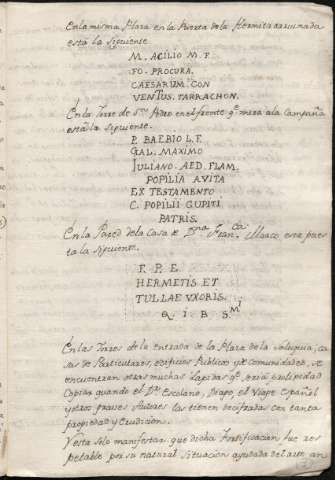 En la misma Plaza en la Puerta de la Hermita arruinada
está la Siguiente
M. ACILIO M. F.
FO. PROCURA.
CAESARUM. CON
VENTUS. TARRACHON.
En la Torre de S.n Pedro en el frente q.e mira a la Campaña
está la Siguiente.
P. BAEBIO L. F.
GAL. MAXIMO
IULIANO. AED. FLAM.
POPILIA AVITA
EX TESTAMENTO
C. POPILII CUPITI
PATRIS.
En la Pared de la Casa de D.na Fran.ca Monco esta pues
ta la Siguiente.
F. P. E.
HERMETIS ET
TULLAE UXORIS.
Q. I B S.
En las Torres de la entrada de la Plaza de la
sas de Particulares, edificios Publicos y de Comunidades, se
encuentran otras muchas Lapidas q.e seria prolixidad
Copiar quando el D.r Escolano, Diago, el Viage Español
y otros graves Autores las tienen decifradas con tanta
propiedad y Erudicion.
Y esto solo manifestar que dicha Fortificacion fue res
petable por su natural Situacion ayudada del arte, an